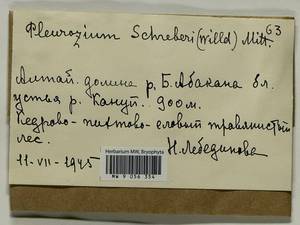 Pleurozium Schreberi (Willd) Mitt. 63
Алтай. долина р. Б. Абакана бл.
устья р. Кануп. 900 м.
Кедрово-пихтово-еловый травянистый
лес.
Н. Лебединова
11-VII-1945
Herbarium MW, Bryophyta
MW 9 036 354